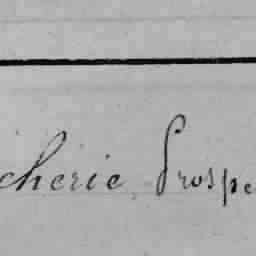 cherie Prospe